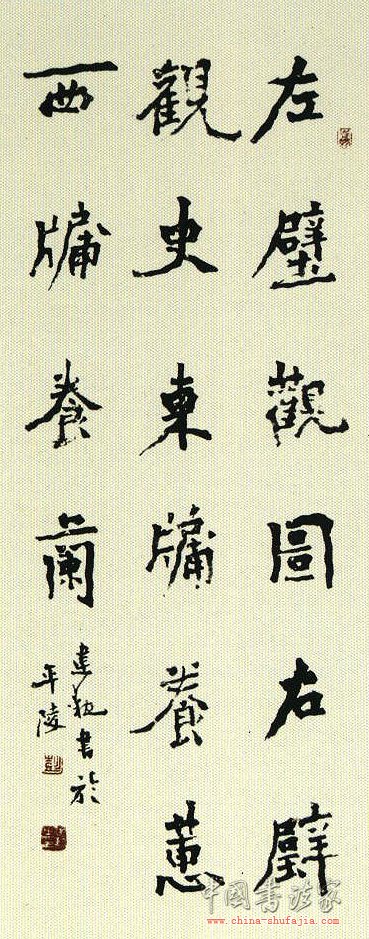 左壁觀圖右壁
觀史東牖養蕙
西牖養蘭
書於
平陵
中国书法家
www.china-shufajia.com